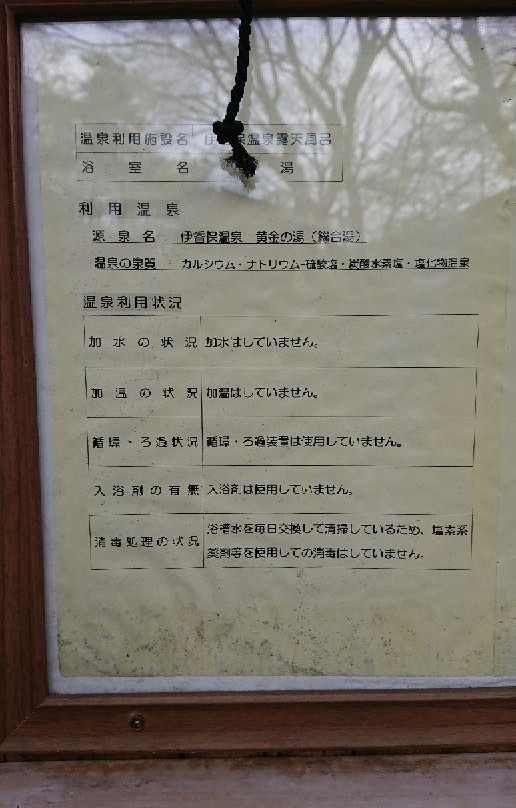 温泉利用施設名 伊 保温泉露天風呂
浴室名 湯
利用温泉
源泉名 伊香保温泉 黄金の湯（総合湯）
温泉の泉質 カルシウム・ナトリウム-硫酸塩・炭酸水素塩・塩化物温泉
温泉利用状況
加水の状況 加水はしていません。
加温の状況 加温はしていません。
循環・ろ過状況 循環・ろ過装置は使用していません。
入浴剤の有無 入浴剤は使用していません。
消毒処理の状況 浴槽水を毎日交換して清掃しているため、塩素系
薬剤等を使用しての消毒はしていません。